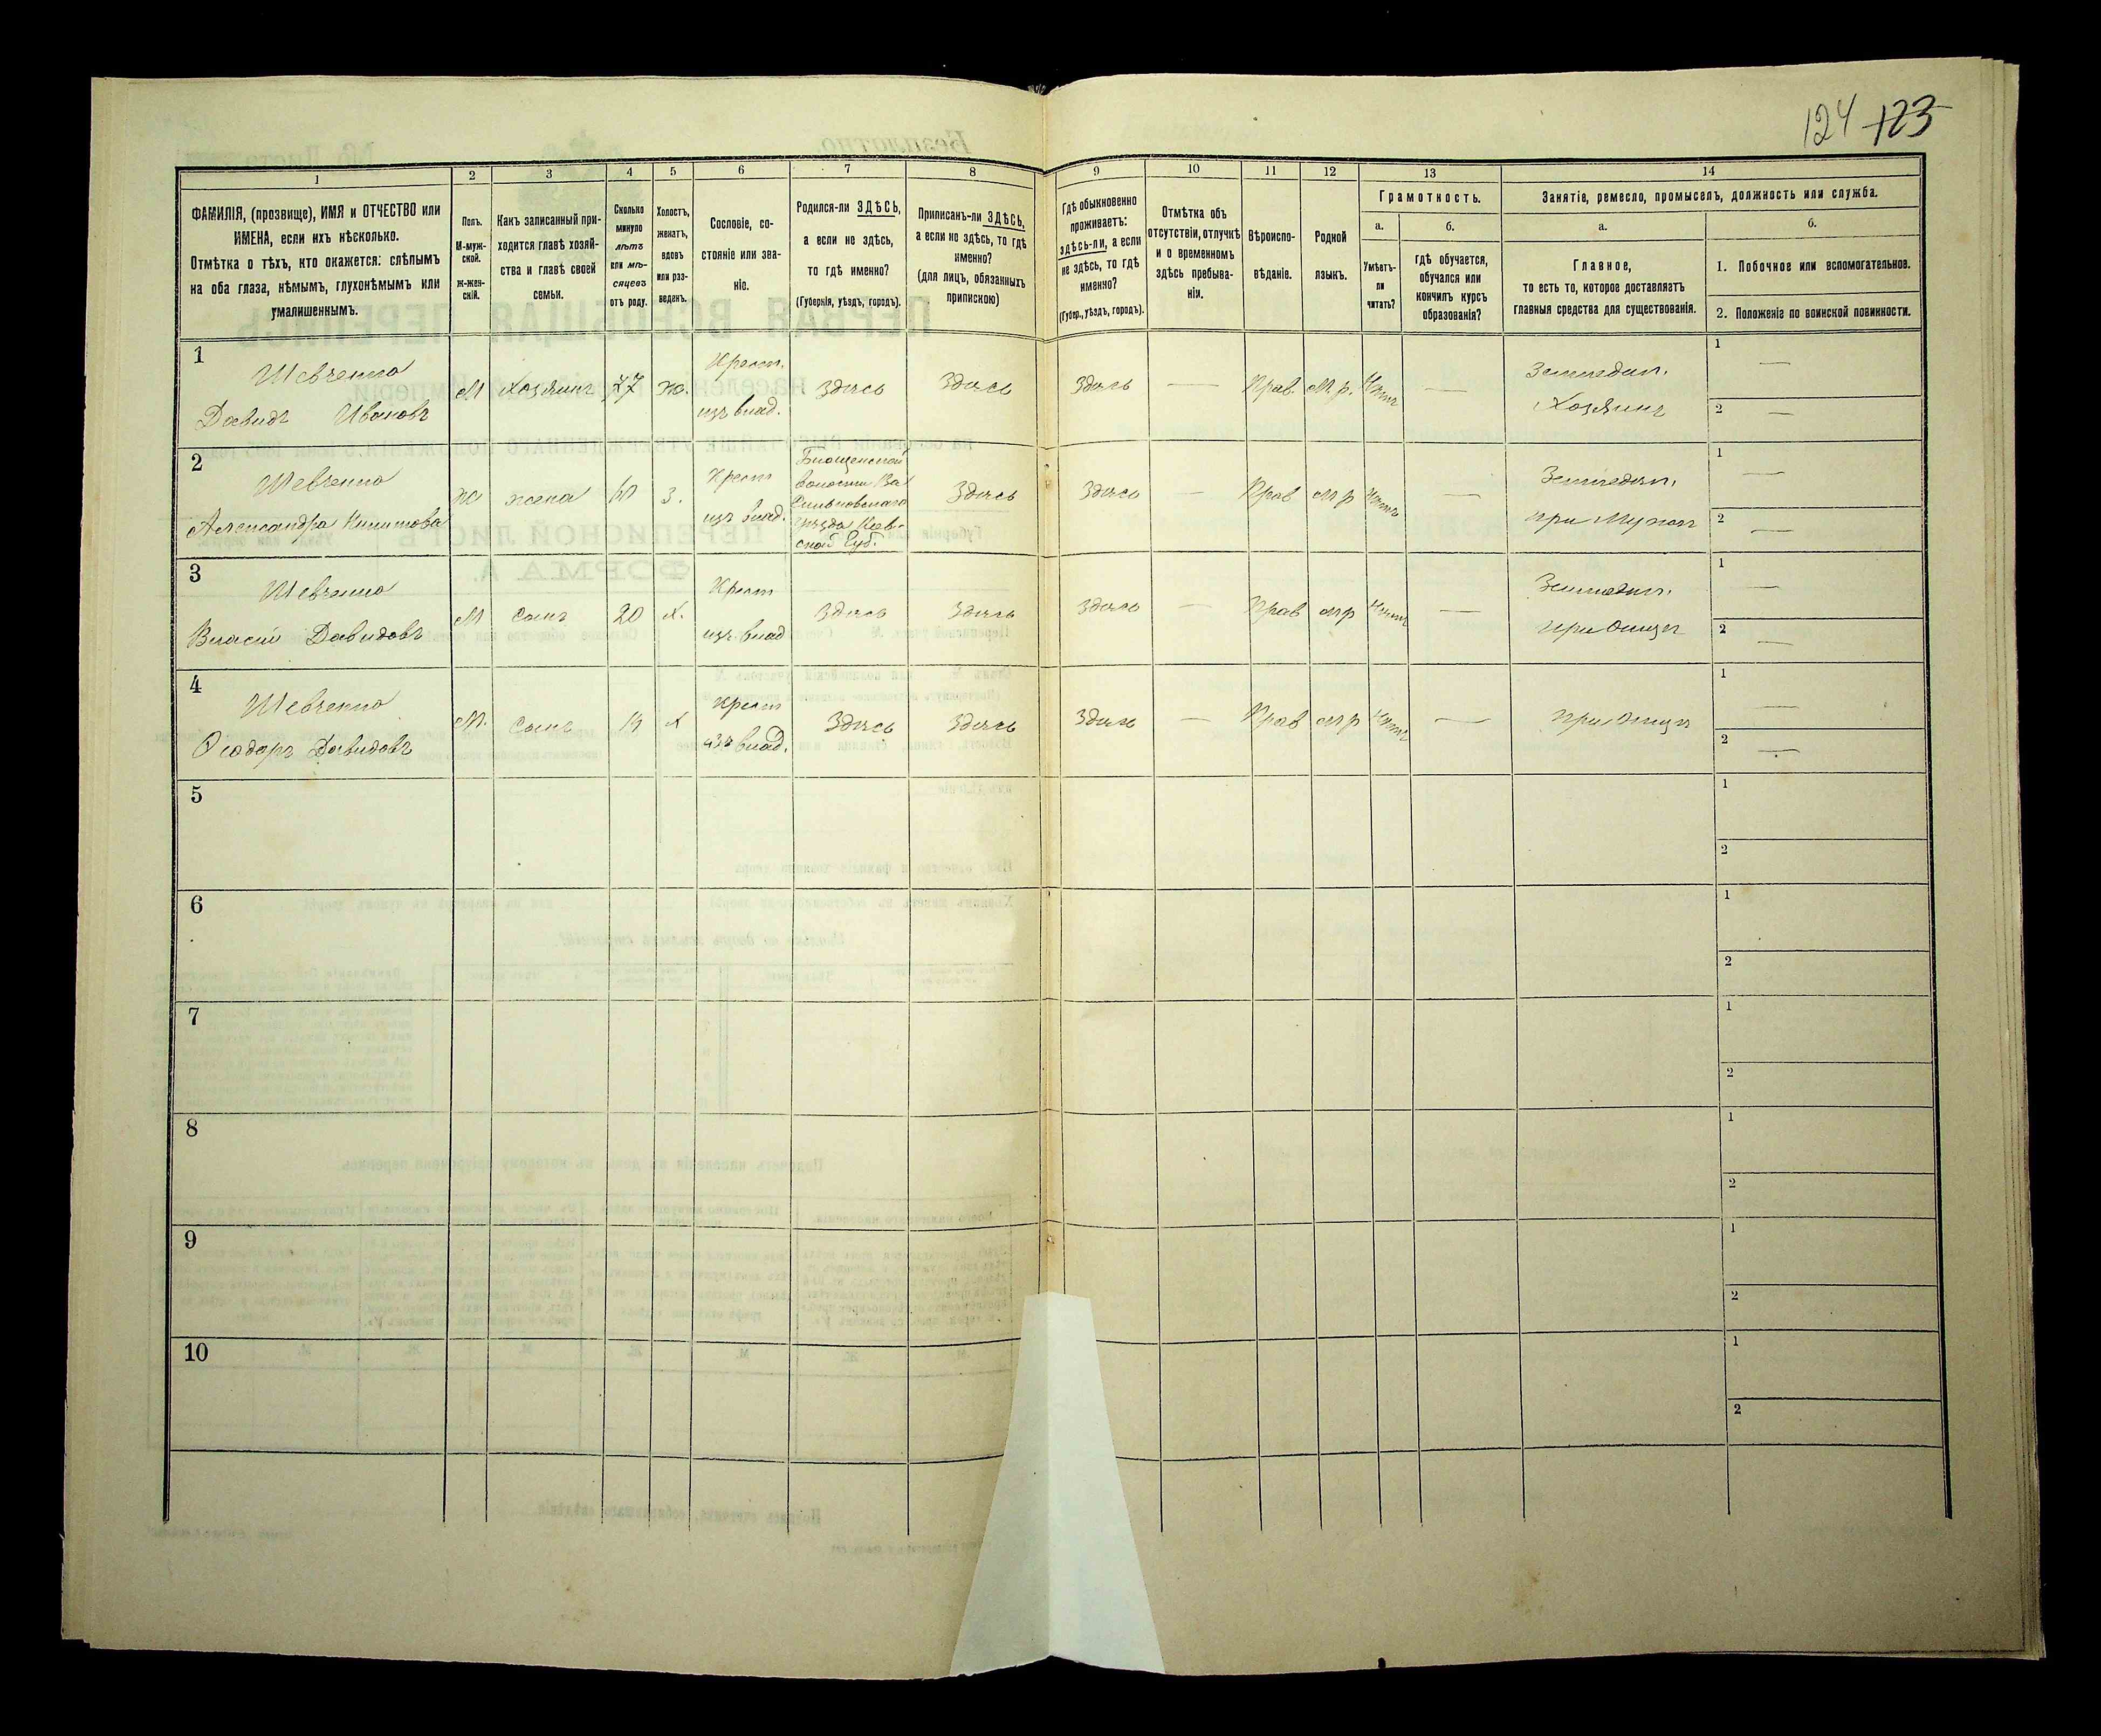 124 123
1
2
3
4
5
6
7
8
9
10
11
12
13
14
ФАМИЛІЯ, (прозвище), ИМЯ и ОТЧЕСТВО или
ИМЕНА, если ихъ нѣсколько.
Отмѣтка о тѣхъ, кто окажется: слѣпымъ
на оба глаза, нѣмымъ, глухонѣмымъ или
умалишеннымъ.
Полъ.
М-муж-
ской.
Ж-жен-
скій.
Какъ записанный при-
ходится главѣ хозяй-
ства и главѣ своей
семьи.
Сколько
минуло
лѣтъ
или мѣ-
сяцевъ
отъ роду.
Холостъ,
женатъ,
вдовъ
или раз-
веденъ.
Сословіе, со-
стояніе или зва-
ніе.
Родился-ли ЗДѢСЬ,
а если не здѣсь,
то гдѣ именно?
(Губернія, уѣздъ, городъ).
Приписанъ-ли ЗДѢСЬ,
а если не здѣсь, то гдѣ
именно?
(для лицъ, обязанныхъ
припискою)
Гдѣ обыкновенно
проживаетъ:
здѣсь-ли, а если
не здѣсь, то гдѣ
именно?
(Губер., уѣздъ, городъ).
Отмѣтка объ
отсутствіи, отлучкѣ
и о временномъ
здѣсь пребыва-
ніи.
Вѣроиспо-
вѣданіе.
Родной
языкъ.
Грамотность.
а.
Умѣетъ-
ли
читать?
б.
гдѣ обучается,
обучался или
кончилъ курсъ
образованія?
Занятіе, ремесло, промыселъ, должность или служба.
а.
Главное,
то есть то, которое доставляетъ
главныя средства для существованія.
б.
1. Побочное или вспомогательное.
2. Положеніе по воинской повинности.
1
Шевченко
Давидъ Ивановъ
М
хозяинъ
47
ж.
Крест.
изъ влад.
Здѣсь
Здѣсь
Здѣсь
—
Прав.
М р.
Нѣтъ
—
Земледѣл.
Хозяинъ
1 —
2 —
2
Шевченко
Александра Никитова
Ж
жена
з.
Крест
изъ влад.
волости Ва
сильковскаго
уѣзда Кiев-
ской Губ.
Здѣсь
Здѣсь
—
Прав
м р
Нѣтъ
—
Земледѣл.
при Мужѣ
1 —
2 —
3
Шевченко
Власій Давидовъ
М
Сынъ
20
х.
Крест
изъ влад
Здѣсь
Здѣсь
Здѣсь
—
Прав
м р
Нѣтъ
—
Земледѣл.
при Отцѣ
1 —
2 —
4
Шевченко
Ѳеодоръ Давидовъ
М.
Сынъ
х
Крест
изъ влад.
Здѣсь
Здѣсь
Здѣсь
—
Прав
м р
Нѣтъ
—
при Отцѣ
1 —
2 —
5
1
2
6
1
2
7
1
2
8
1
2
9
1
2
10
1
2